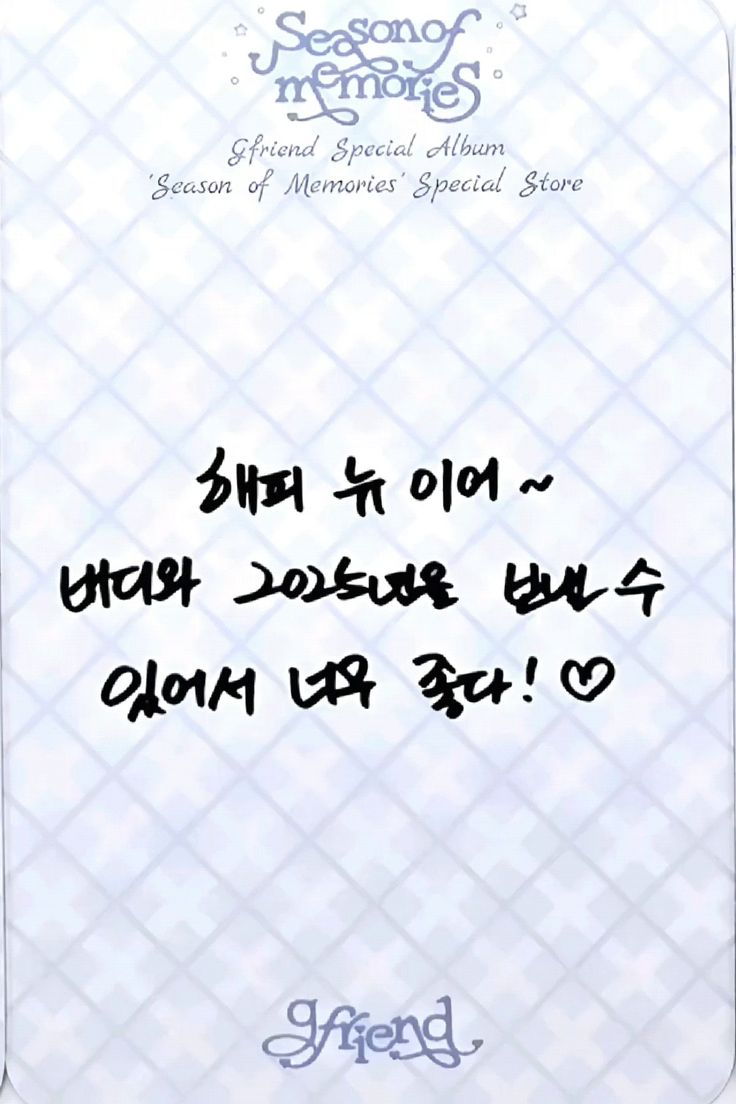 Season of
memories
Gfriend Special Album
'Season of Memories' Special Store
해피 뉴 이어 ~
버디와 2025년을 보낼 수
있어서 너무 좋다! ♡
gfriend